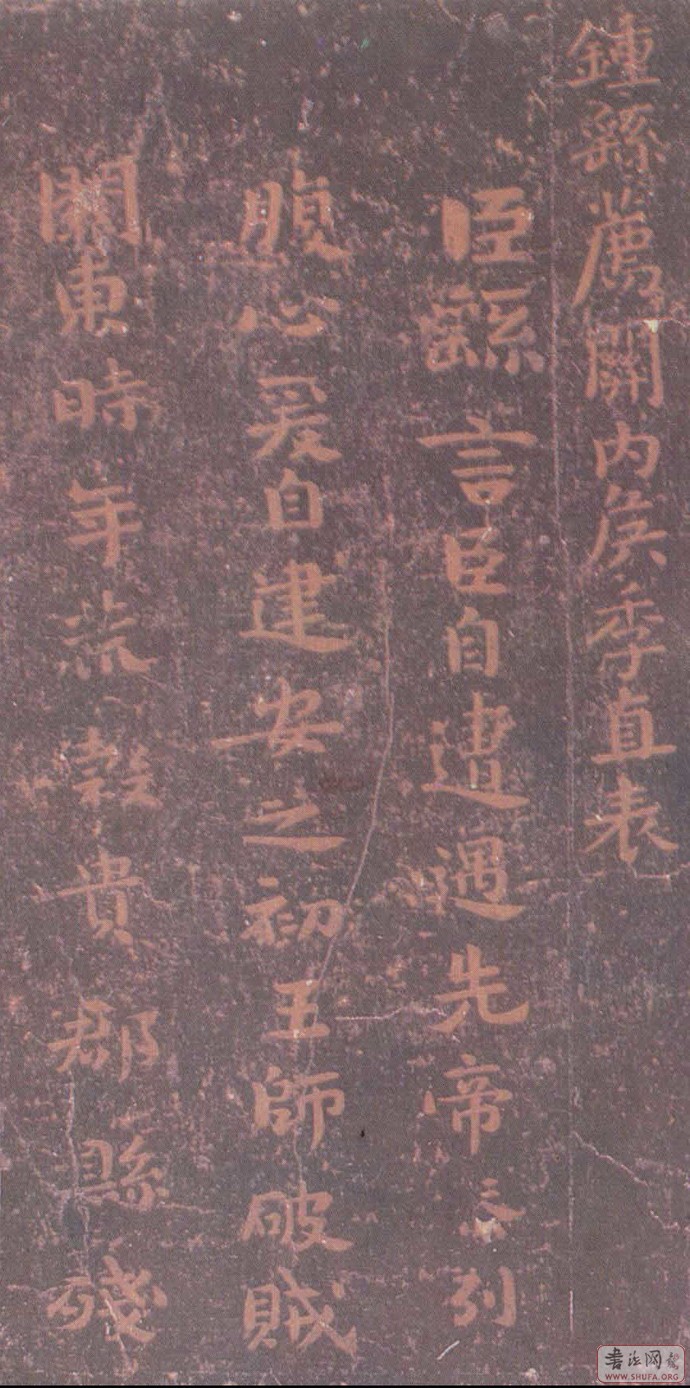 鍾繇薦關內侯季直表
臣繇言臣自遭遇先帝忝列
腹心爰自建安之初王師破賊
關東時年荒穀貴郡縣殘
書法网
WWW.SHUFA.ORG